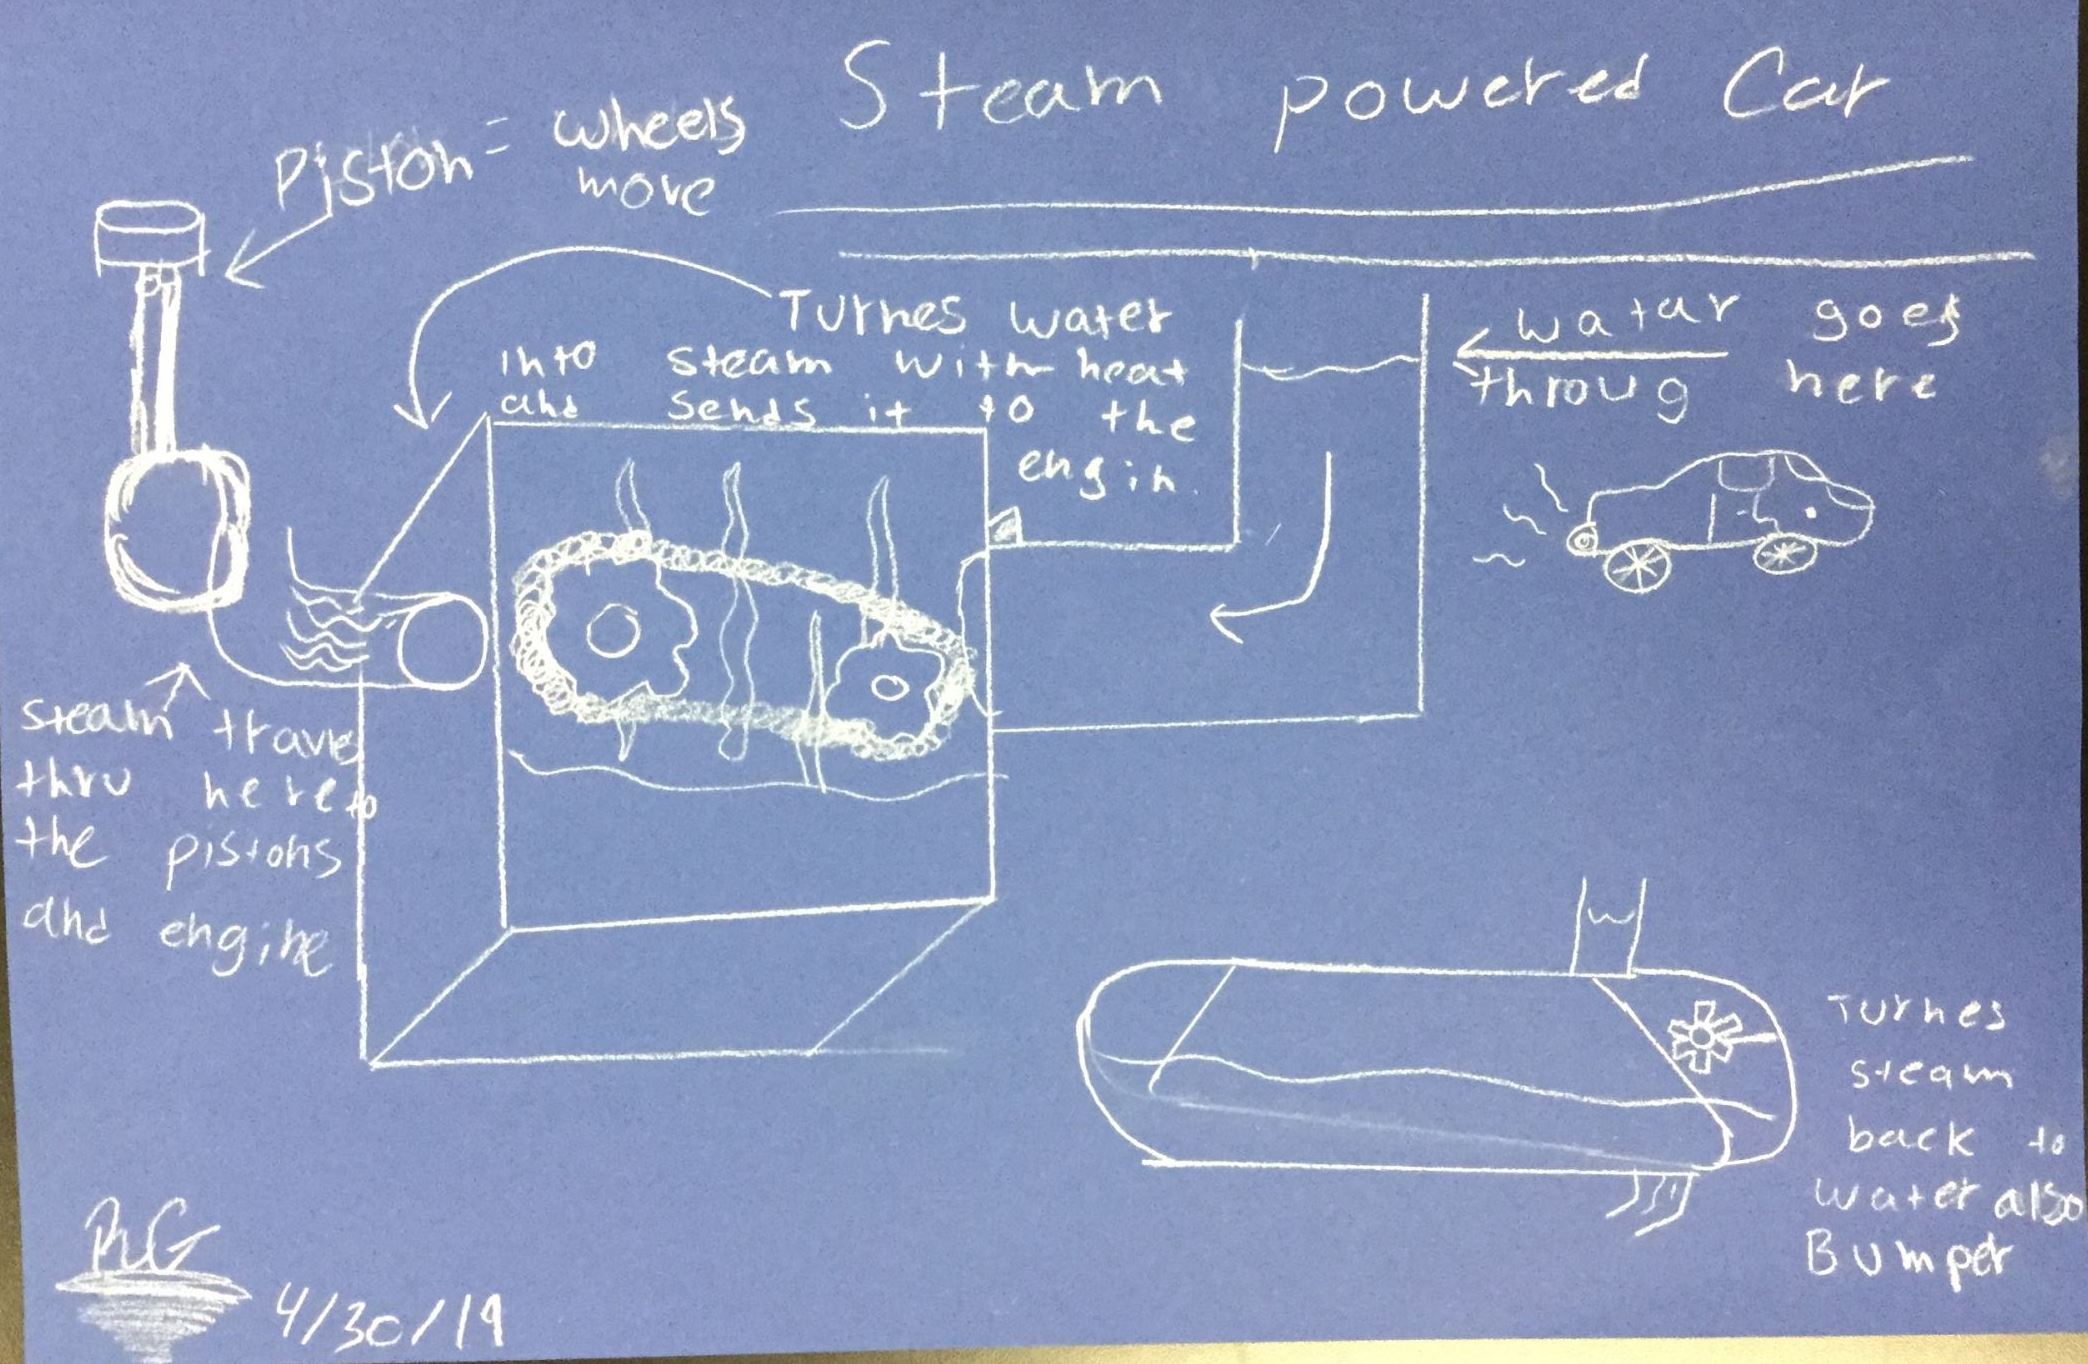 Steam powered Car
Piston = wheels
move
Turnes water
into steam with heat
and sends it to the
engin.
watar goes
throug here
steam travel
thru here to
the pistons
and engine
W
Turnes
steam
back to
water also
Bumper
RG
4/30/19